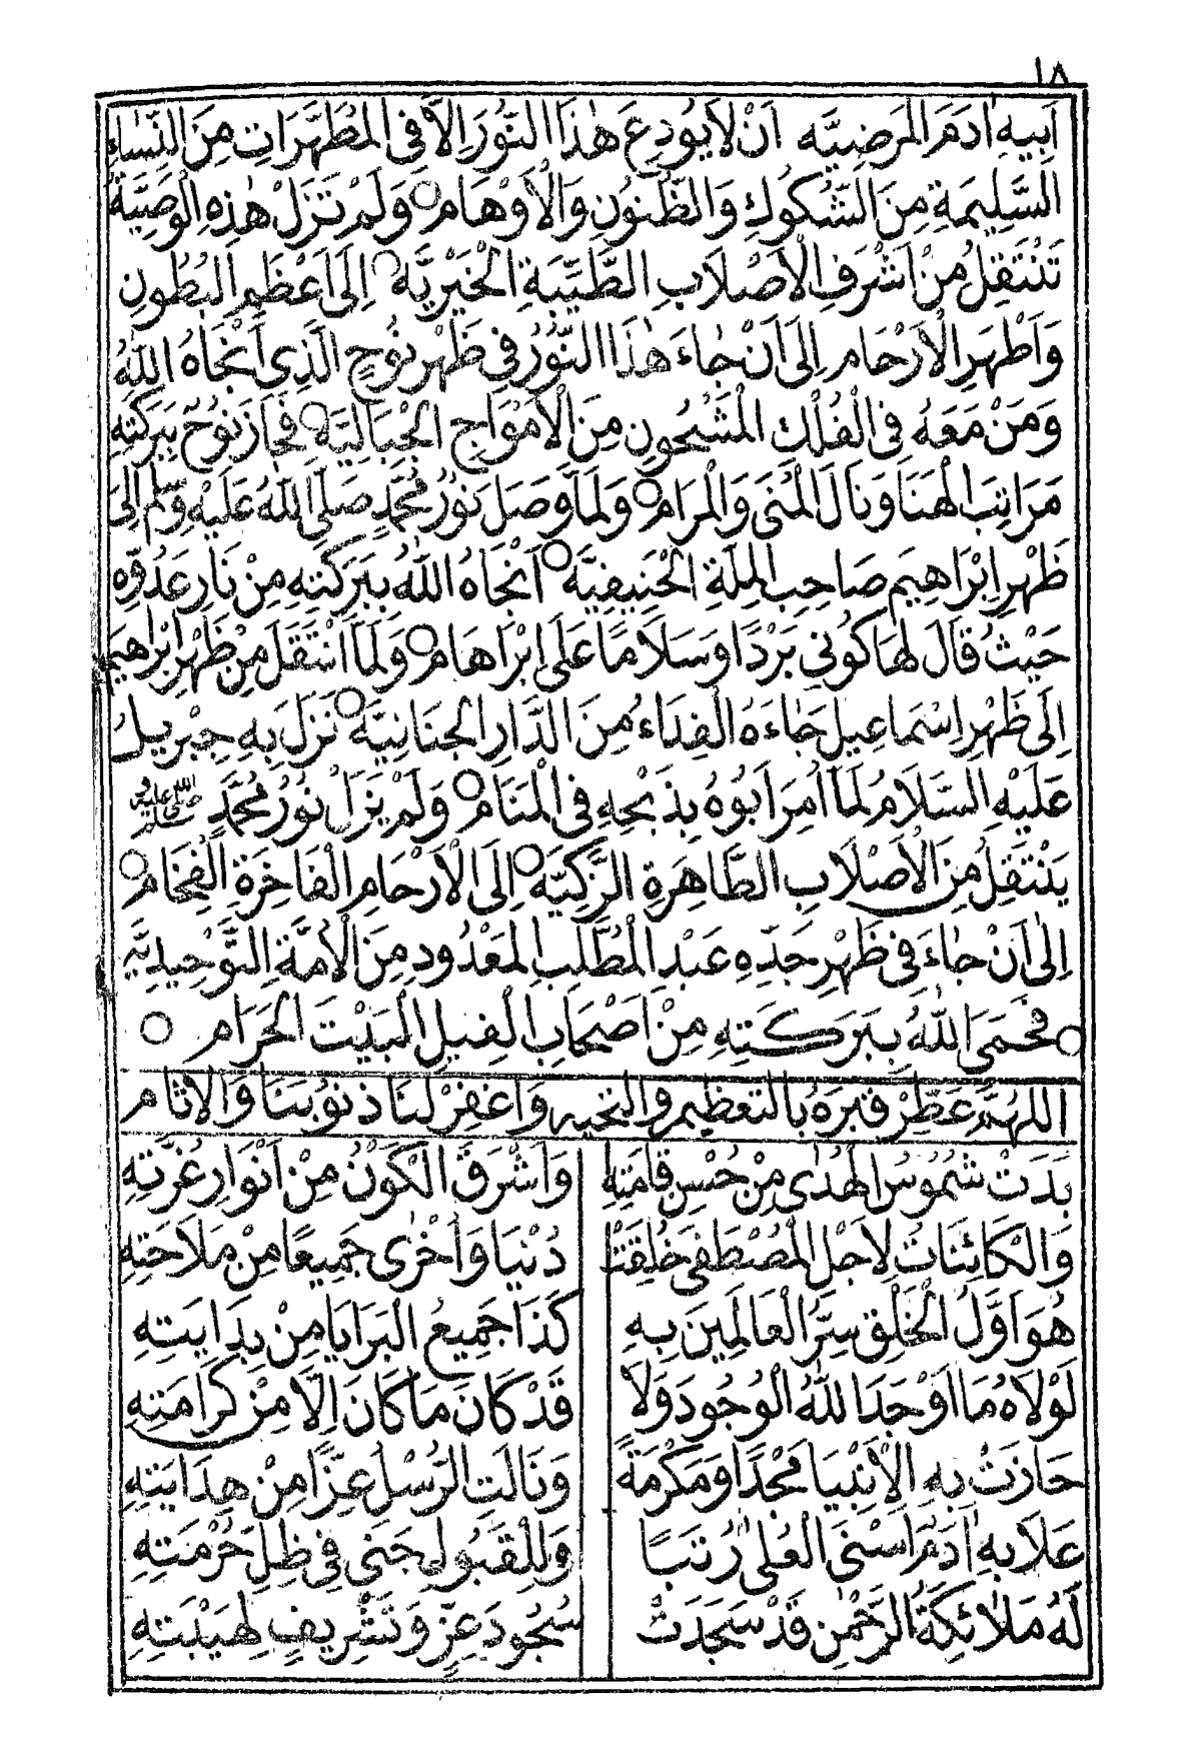 ١٨
اَبِيهِ اٰدَمَ الْمَرضِيَّه اَنْ لاَ يُودِعَ هٰذَا النُّورَ اِلاَّ فِى الْمُطَهَّرَاتِ مِنَ النِّسَاءِ
السَّلِيمَةِ مِنَ الشُّكُوكِ وَالظُّنُونِ وَالْاَوْهَام ○ وَلَمْ تَزَلْ هٰذِهِ الْوَصِيَّةُ
تَنْتَقِلُ مِنْ اَشْرَفِ الْاَصْلَابِ الطَّيِّبَةِ الْخَيْرِيَّه ○ اِلَى اَعْظَمِ الْبُطُونِ
وَاَطْهَرِ الْاَرْحَام اِلَى اَنْ جَاءَ هٰذَا النُّورُ فِى ظَهْرِ نُوحٍ الَّذِى اَنْجَاهُ اللهُ
وَمَنْ مَعَهُ فِى الْفُلْكِ الْمَشْحُونِ مِنَ الْاَمْوَاجِ الْجِبَالِيَّه ○ فَحَازَ نُوحٌ بِبَرَكَتِهِ
مَرَاتِبَ الْهَنَا وَنَالَ الْمُنَى وَالْمَرَام ○ وَلَمَّا وَصَلَ نُورُ مُحَمَّدٍ صَلَّى اللهُ عَلَيْهِ وَسَلَّم اِلَى
ظَهْرِ اِبْرَاهِيمَ صَاحِبِ الْمِلَّةِ الْحَنِيفِيَّه ○ اَنْجَاهُ اللهُ بِبَرَكَتِهِ مِنْ نَارِ عَدُوِّه
حَيْثُ قَالَ لَهَا كُونِى بَرْدًا وَسَلَامًا عَلَى اِبْرَاهَام ○ وَلَمَّا انْتَقَلَ مِنْ ظَهْرِ اِبْرَاهِيمَ
اِلَى ظَهْرِ اِسْمَاعِيلَ جَاءَهُ الْفِدَاءُ مِنَ الدَّارِ الْجَنَانِيَّه ○ نَزَلَ بِهِ جِبْرِيلُ
عَلَيْهِ السَّلَامُ لَمَّا اُمِرَ اَبُوهُ بِذَبْحِهِ فِى الْمَنَام ○ وَلَمْ يَزَلْ نُورُ مُحَمَّدٍ صلى الله عليه وسلم
يَنْتَقِلُ مِنَ الْاَصْلَابِ الطَّاهِرَةِ الزَّكِيَّه ○ اِلَى الْاَرْحَامِ الْفَاخِرَةِ الْفِخَام ○
اِلَى اَنْ جَاءَ فِى ظَهْرِ جَدِّهِ عَبْدِ الْمُطَّلِبِ الْمَعْدُودِ مِنَ الْاُمَّةِ التَّوْحِيدِيَّه
○ فَحَمَى اللهُ بِبَرَكَتِهِ مِنْ اَصْحَابِ الْفِيلِ الْبَيْتَ الْحَرَام ○
اللّهُمَّ عَطِّرْ قَبْرَهُ بِالتَّعْظِيمِ وَالتَّحِيَّه وَاغْفِرْ لَنَا ذُنُوبَنَا وَالْاٰثَام
بَدَتْ شُمُوسُ الْهُدٰى مِنْ حُسْنِ قَامَتِهِ وَاَشْرَقَ الْكَوْنُ مِنْ اَنْوَارِ غُرَّتِهِ
وَالْكَائِنَاتُ لِاَجْلِ الْمُصْطَفَى خُلِقَتْ دُنْيَا وَاُخْرٰى جَمِيعًا مِنْ مَلَاحَتِهِ
هُوَ اَوَّلُ الْخَلْقِ سِرُّ الْعَالَمِينَ بِهِ كَذَا جَمِيعُ الْبَرَايَا مِنْ بِدَايَتِهِ
لَوْلَاهُ مَا اَوْجَدَ اللهُ الْوُجُودَ وَلَا قَدْ كَانَ مَا كَانَ اِلَّا مِنْ كَرَامَتِهِ
حَازَتْ بِهِ الْاَنْبِيَا مَجْدًا وَمَكْرُمَةً وَنَالَتِ الرُّسْلُ عِزًّا مِنْ هِدَايَتِهِ
عَلَا بِهِ اٰدَمُ اَسْنَى الْعُلٰى رُتَبًا وَلِلْقَبُولِ جَنَى فِى ظِلِّ حُرْمَتِهِ
لَهُ مَلَائِكَةُ الرَّحْمٰنِ قَدْ سَجَدَتْ سُجُودَ عِزٍّ وَتَشْرِيفٍ لِهَيْبَتِهِ